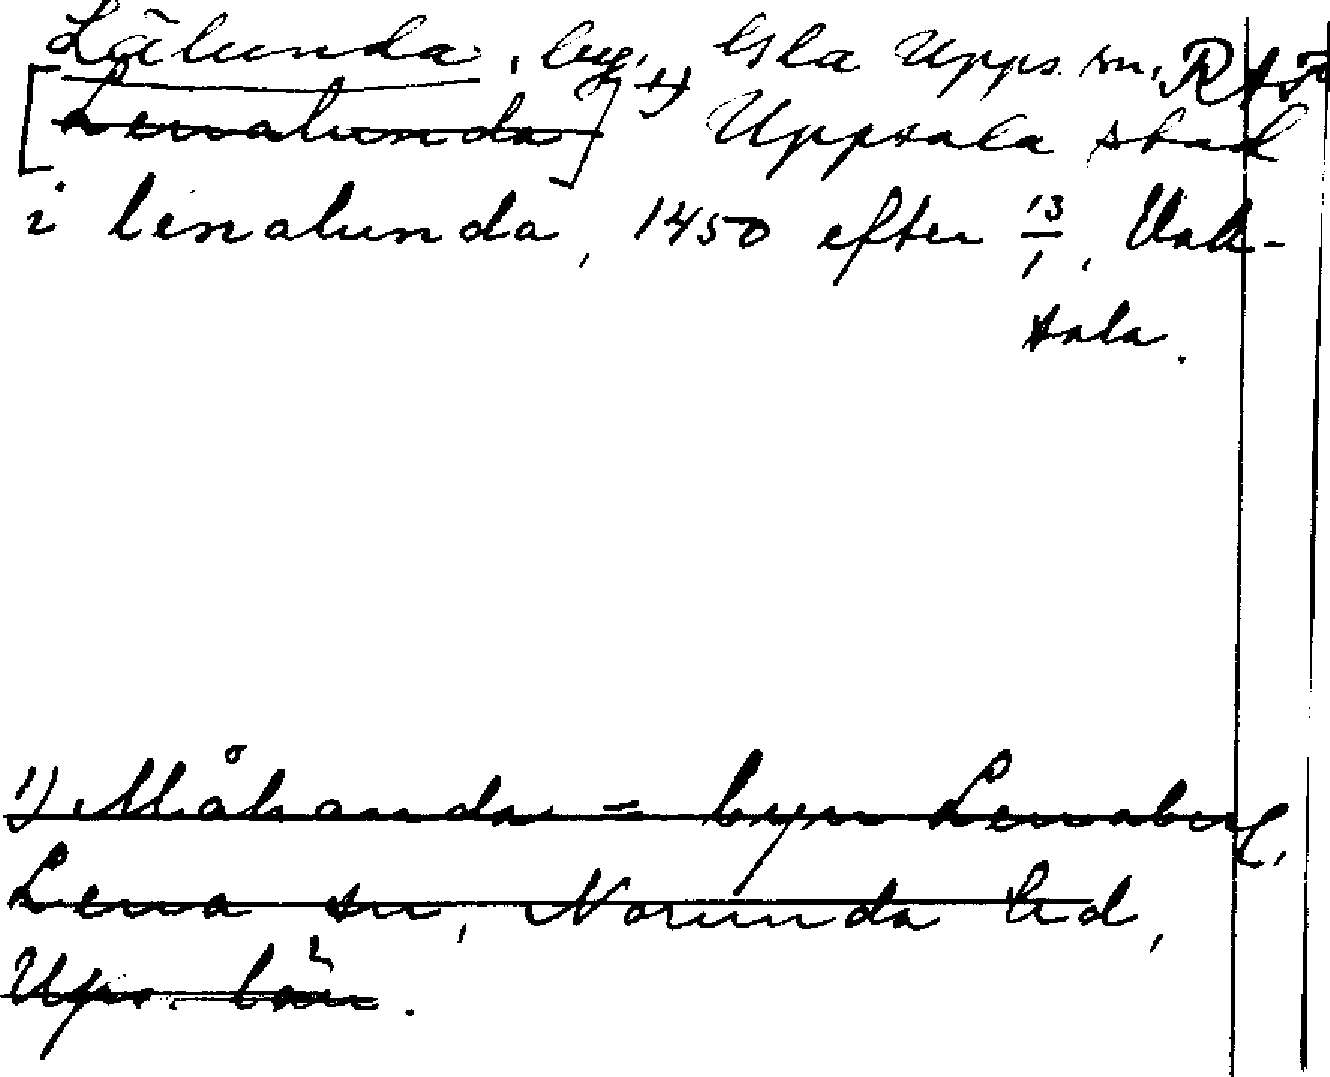 Lälunda, by, Gla Upps. sn,
[Lenalunda] 1) Uppsala stad
i lenalunda, 1450 efter 13/1, Vak-
sala.
1) Måhända = byn Lenaberg,
Lena sn, Norunda hd,
Ups. län.